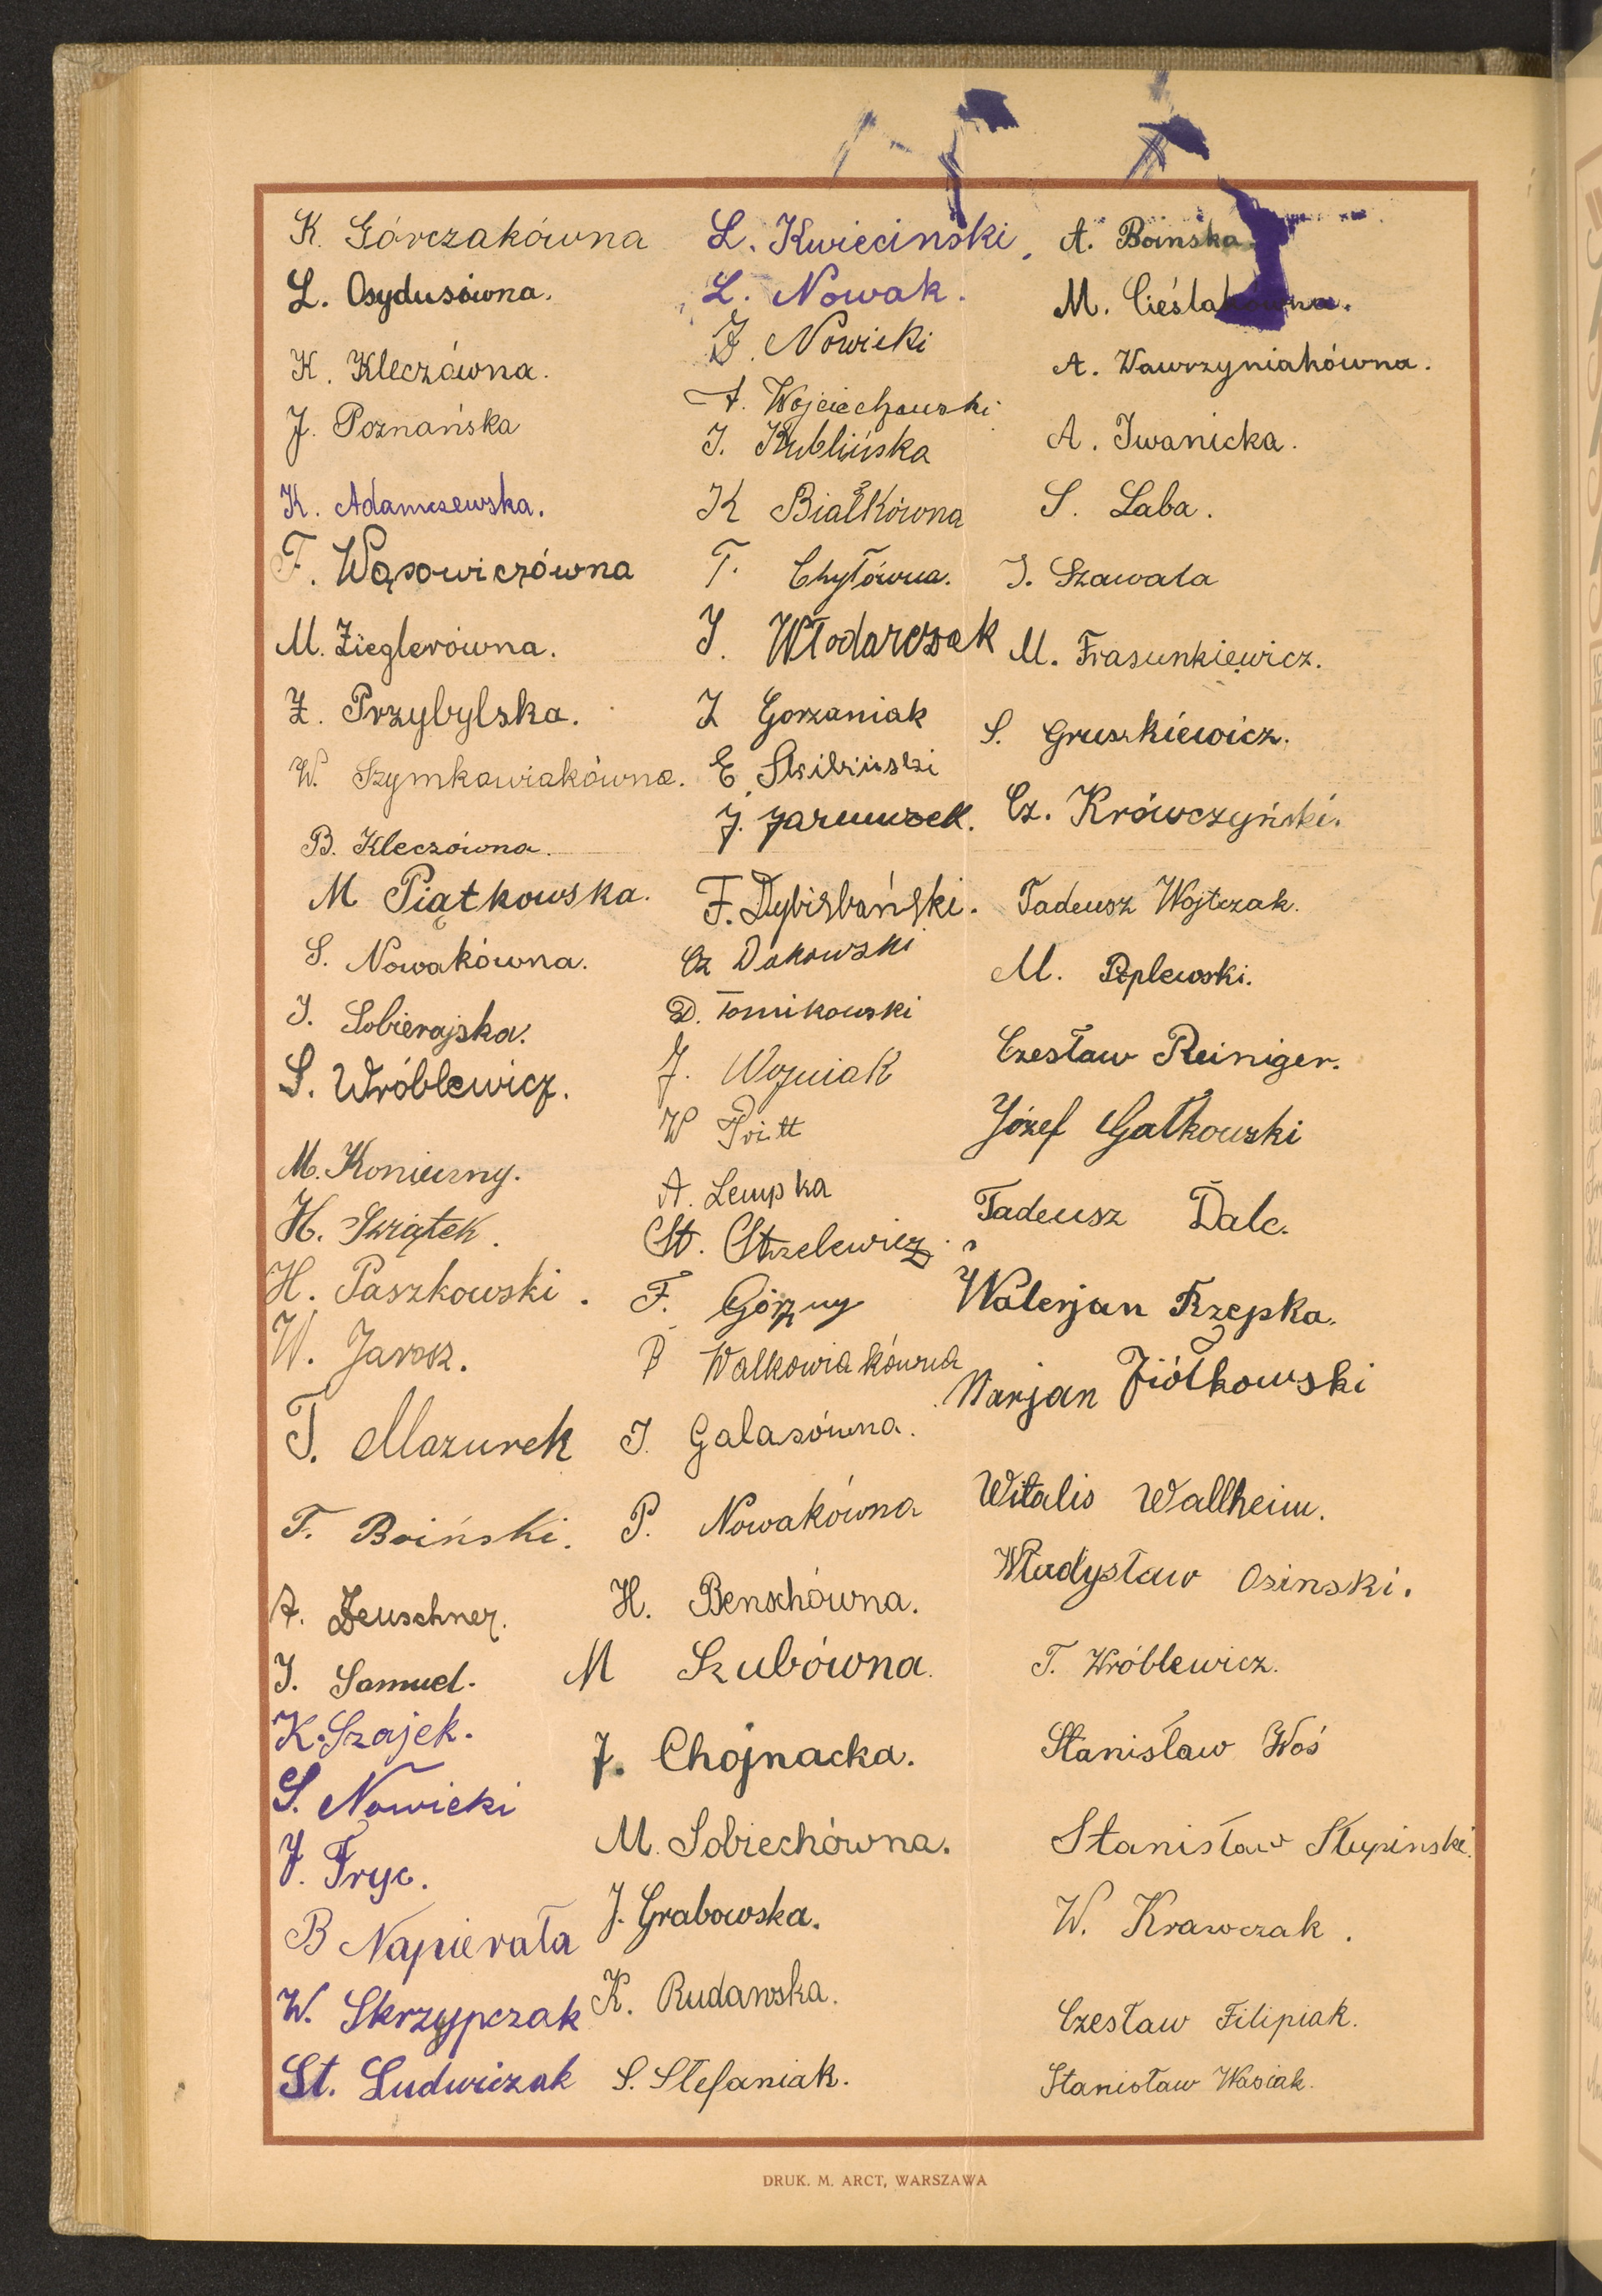 K. Górczakówna
L. Osydusówna.
K. Kleczówna.
J. Poznańska
K. Adamczewska.
F. Wąsowiczówna
M. Zieglerówna.
Z. Przybylska.
W. Szymkowiakówna.
B. Kleczówna.
M Piątkowska.
S. Nowakówna.
J. Sobierajska.
S. Wróblewicz.
M. Konieczny.
H. Świątek.
H. Paszkowski.
W. Jarosz.
T. Mazurek
T. Boiński.
A. Zeuschner.
J. Samuel.
K. Szajek.
S. Nowicki
J. Fryc.
B Napierała
W. Skrzypczak
St. Ludwiczak
L. Kwieciński,
L. Nowak.
J. Nowicki
A. Wojciechowski
J. Kublińska
K Białkówna
T. Chytówna.
J. Włodarczak
Z Gorzaniak
E. Skibiński
J. Jarmuzek.
F. Dybizbański.
Cz Dakowski
D. Tomikowski
J. Wozniak
W Pritt
A. Lempka
St. Strzelewicz.
F. Górzny
P Walkowiakówna
J. Galasówna.
P. Nowakówna
H. Benschówna.
M Szubówna.
J. Chojnacka.
M. Sobiechówna.
J. Grabowska.
K. Rudawska.
S. Stefaniak.
A. Boińska
M. Cieślakówna.
A. Wawrzyniakówna.
A. Iwanicka.
S. Laba.
J. Szawala
M. Frasunkiewicz.
S. Gruszkiewicz.
Cz. Krówczyński.
Tadeusz Wojtczak.
M. Poplewski.
Czesław Reiniger.
Józef Gałkowski
Tadeusz Dalc.
Walerjan Rzepka.
Marjan Ziółkowski
Witalis Wallheim.
Władysław Osinski.
T. Wróblewicz.
Stanisław Woś
Stanisław Słupinski.
W. Krawczak.
Czesław Filipiak.
Stanisław Wasiak.
DRUK. M. ARCT, WARSZAWA